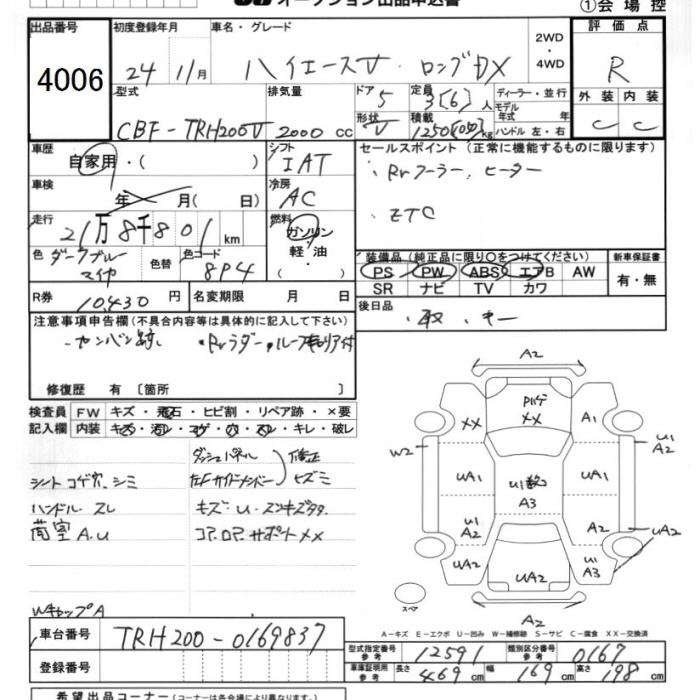 オークション出品申込書
①会場控
出品番号 初度登録年月 車名・グレード 2WD ・4WD 評価点
4006 24年 11月 ハイエースV ロングDX R
型式 排気量 ドア 5 定員 3[6]人 ディーラー・並行 外装 内装
CBF-TRH200V 2000cc 形状 V 積載 kg モデル年式 年式 ハンドル 左・右 C C
車歴 自家用・( ) シフト IAT セールスポイント (正常に機能するものに限ります)
車検 年 月( 日) 冷房 AC ・Rrクーラー、ヒーター
走行 21万8千801km 燃料 ガソリン・軽・油 ・ETC
色 ダークブルーマイカ 色替 色コード 8P4 装備品(純正品に限り○をつけてください) 新車保証書
PS PW ABS エアB AW 有・無
SR ナビ TV カワ
R券 10,430円 名変期限 月 日 後日品 ・取 ・キー
注意事項申告欄(不具合内容等は具体的に記入して下さい)
・カンバン跡 ・Rrラダー ・ルーフキャリア付
修復歴 有[箇所 ]
検査員 FW キズ・飛石・ヒビ割・リペア跡・×要
記入欄 内装 キズ・汚れ・コゲ・穴・スレ・キレ・破レ
ダッシュパネル 修正
シート コゲ穴、シミ 左Fサイドメンバー ヒズミ
ハンドル スレ キズ U
荷室 A.U コアサポートXX
WキャップA
A2
Rハゲ XX
XX A1
W2 U1 A2
UA1 U1 A3 UA1
U1 A2 A2 UA2
UA2 UA2 U1 A3
スペア A2
A-キズ E-エクボ U-凹み W-補修跡 S-サビ C-腐食 XX-交換済
車台番号 TRH200-0169837 型式指定番号 参考 12591 類別区分番号 参考 0167
登録番号 車庫証明用 参考 長さ 469cm 幅 169cm 高さ 198cm
希望出品コーナー(コーナー名は各会場により異なります。)